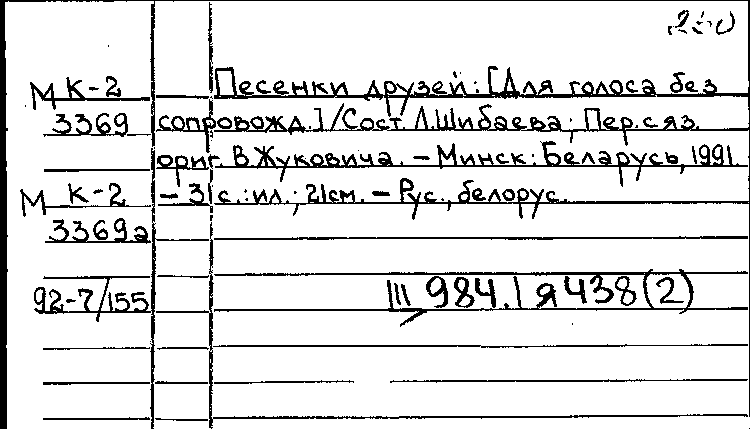 М К-2 Песенки друзей: [Для голоса без
3369 сопровожд.] / Сост. Л.Шибаева; Пер. с яз.
ориг. В.Жуковича. – Минск: Беларусь, 1991.
М К-2 – 31 с.: ил.; 21 см. – Рус., белорус.
3369а
92-7/155 III 984.1 я 438 (2)